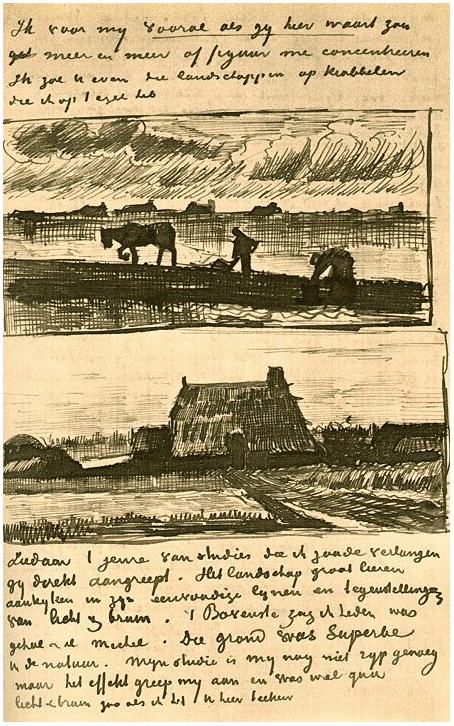 Ik voor my vooral als gy hier waart zou
meer en meer op figuur me concentreeren
Ik zal U even die landschappen op krabbelen
die ik op 't ezel heb
Ziedaar 't genre van studies die ik gaarne verlangen
gy direkt aangreept. Het landschap groot leeren
aankyken in zyn eenvoudige lynen en tegenstellingen
van licht & bruin. 't Bovenste zag ik heden was
geheel à la Michel. Die grond was Superbe
in de natuur. Myn studie is my nog niet ryp genoeg
maar het effekt greep my aan en was wel qua
licht & bruin zoo als ik het U hier teeken